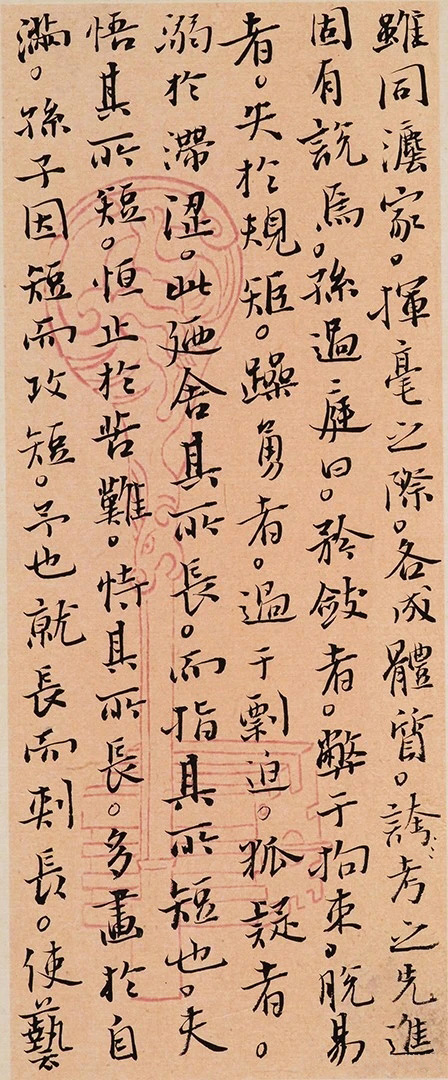 雖同瀍家。揮毫之際。各成體質。請考之先進
固有說焉。孫過庭曰。矜斂者。弊于拘束。脫易
者。失於規矩。躁勇者。過于剽迫。狐疑者。
溺於滯澀。此廼舍其所長。而指其所短也。夫
悟其所短。恒止於苦難。恃其所長。多畫於自
滿。孫子因短而攻短。予也就長而刺長。使藝